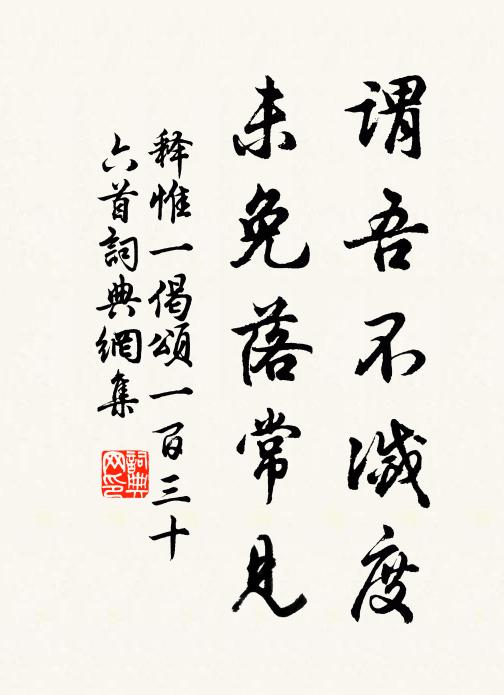 謂吾不滅度
未免落常見
释惟一偈頌一百三十
六首詞典網集
詞典
网印